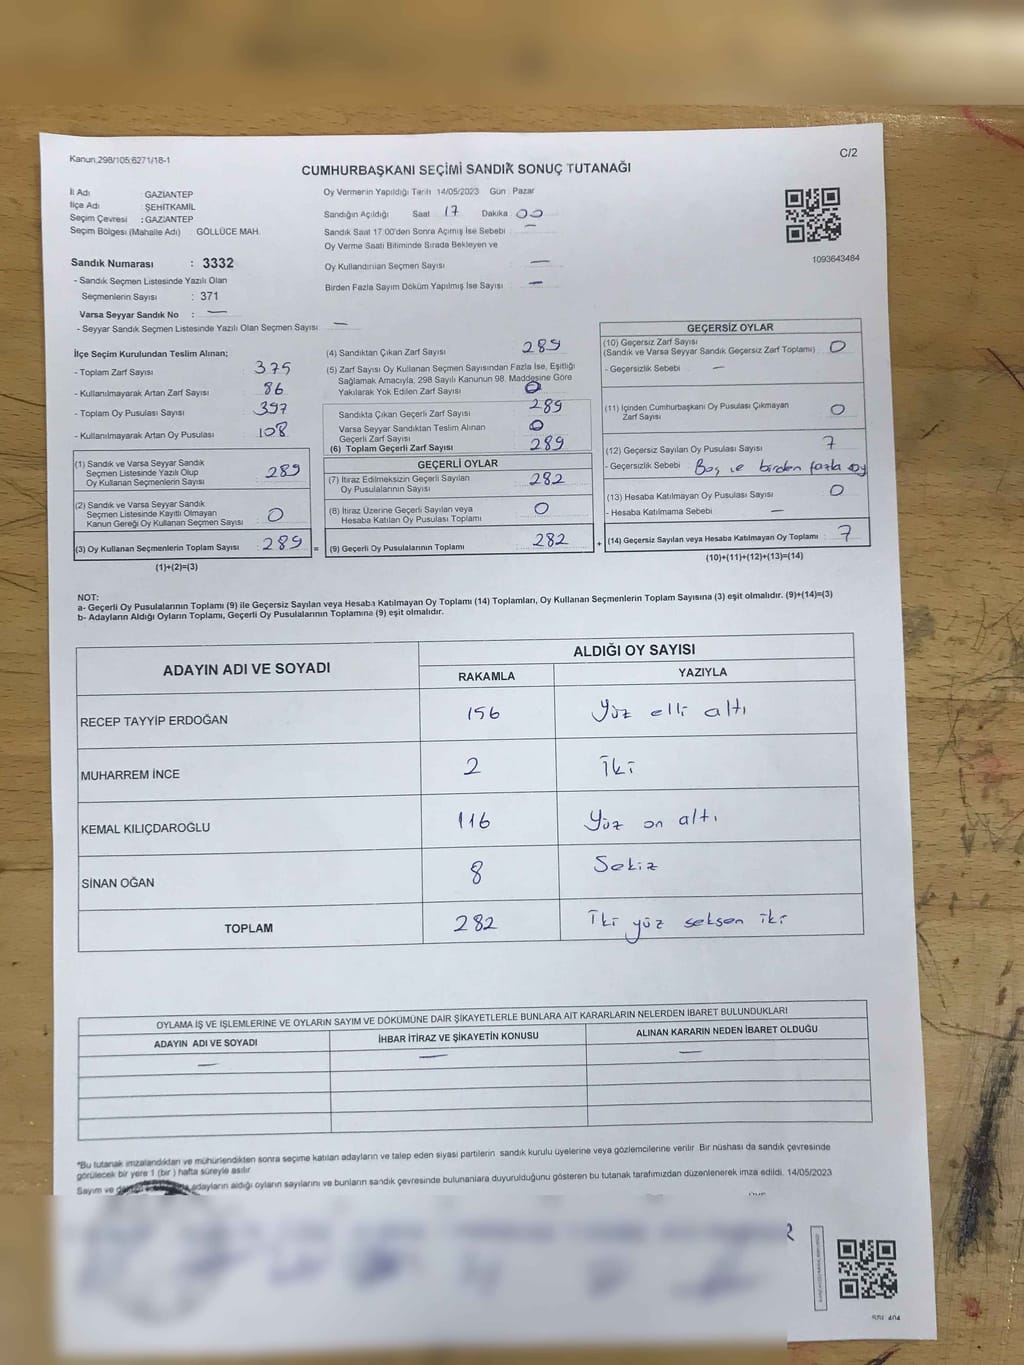 Kanun.298/105;6271/18-1
C/2
CUMHURBAŞKANI SEÇİMİ SANDIK SONUÇ TUTANAĞI
İl Adı : GAZİANTEP
İlçe Adı : ŞEHİTKAMİL
Seçim Çevresi : GAZİANTEP
Seçim Bölgesi (Mahalle Adı) : GÖLLÜCE MAH.
Sandık Numarası : 3332
- Sandık Seçmen Listesinde Yazılı Olan
Seçmenlerin Sayısı : 371
Varsa Seyyar Sandık No : —
- Seyyar Sandık Seçmen Listesinde Yazılı Olan Seçmen Sayısı —
Oy Vermenin Yapıldığı Tarih 14/05/2023 Gün Pazar
Sandığın Açıldığı Saat 17 Dakika 00
Sandık Saat 17.00'den Sonra Açılmış İse Sebebi : —
Oy Verme Saati Bitiminde Sırada Bekleyen ve
Oy Kullandırılan Seçmen Sayısı —
Birden Fazla Sayım Döküm Yapılmış İse Sayısı —
1093643484
İlçe Seçim Kurulundan Teslim Alınan;
- Toplam Zarf Sayısı : 375
- Kullanılmayarak Artan Zarf Sayısı : 86
- Toplam Oy Pusulası Sayısı : 397
- Kullanılmayarak Artan Oy Pusulası : 108
(1) Sandık ve Varsa Seyyar Sandık
Seçmen Listesinde Yazılı Olup
Oy Kullanan Seçmenlerin Sayısı : 289
(2) Sandık ve Varsa Seyyar Sandık
Seçmen Listesinde Kayıtlı Olmayan
Kanun Gereği Oy Kullanan Seçmen Sayısı : 0
(3) Oy Kullanan Seçmenlerin Toplam Sayısı : 289 =
(1)+(2)=(3)
(4) Sandıktan Çıkan Zarf Sayısı : 289
(5) Zarf Sayısı Oy Kullanan Seçmen Sayısından Fazla İse, Eşitliği
Sağlamak Amacıyla, 298 Sayılı Kanunun 98. Maddesine Göre
Yakılarak Yok Edilen Zarf Sayısı : 0
Sandıkta Çıkan Geçerli Zarf Sayısı : 289
Varsa Seyyar Sandıktan Teslim Alınan
Geçerli Zarf Sayısı : 0
(6) Toplam Geçerli Zarf Sayısı : 289
GEÇERLİ OYLAR
(7) İtiraz Edilmeksizin Geçerli Sayılan
Oy Pusulalarının Sayısı : 282
(8) İtiraz Üzerine Geçerli Sayılan veya
Hesaba Katılan Oy Pusulası Toplamı : 0
(9) Geçerli Oy Pusulalarının Toplamı : 282 +
GEÇERSİZ OYLAR
(10) Geçersiz Zarf Sayısı
(Sandık ve Varsa Seyyar Sandık Geçersiz Zarf Toplamı) : 0
- Geçersizlik Sebebi : —
(11) İçinden Cumhurbaşkanı Oy Pusulası Çıkmayan
Zarf Sayısı : 0
(12) Geçersiz Sayılan Oy Pusulası Sayısı : 7
- Geçersizlik Sebebi : Boş ve birden fazla oy
(13) Hesaba Katılmayan Oy Pusulası Sayısı : 0
- Hesaba Katılmama Sebebi : —
(14) Geçersiz Sayılan veya Hesaba Katılmayan Oy Toplamı : 7
(10)+(11)+(12)+(13)=(14)
NOT:
a- Geçerli Oy Pusulalarının Toplamı (9) ile Geçersiz Sayılan veya Hesaba Katılmayan Oy Toplamı (14) Toplamları, Oy Kullanan Seçmenlerin Toplam Sayısına (3) eşit olmalıdır. (9)+(14)=(3)
b- Adayların Aldığı Oyların Toplamı, Geçerli Oy Pusulalarının Toplamına (9) eşit olmalıdır.
ADAYIN ADI VE SOYADI ALDIĞI OY SAYISI
RAKAMLA YAZIYLA
RECEP TAYYİP ERDOĞAN 156 Yüz elli altı
MUHARREM İNCE 2 İki
KEMAL KILIÇDAROĞLU 116 Yüz on altı
SİNAN OĞAN 8 Sekiz
TOPLAM 282 İki yüz seksen iki
OYLAMA İŞ VE İŞLEMLERİNE VE OYLARIN SAYIM VE DÖKÜMÜNE DAİR ŞİKAYETLERLE BUNLARA AİT KARARLARIN NELERDEN İBARET BULUNDUKLARI
ADAYIN ADI VE SOYADI İHBAR İTİRAZ VE ŞİKAYETİN KONUSU ALINAN KARARIN NEDEN İBARET OLDUĞU
— — —
*Bu tutanak imzalandıktan ve mühürlendikten sonra seçime katılan adayların ve talep eden siyasi partilerin sandık kurulu üyelerine veya gözlemcilerine verilir. Bir nüshası da sandık çevresinde
görülecek bir yere 1 (bir) hafta süreyle asılır.
Sayım ve adayların aldığı oyların sayılarını ve bunların sandık çevresinde bulunanlara duyurulduğunu gösteren bu tutanak tarafımızdan düzenlenerek imza edildi. 14/05/2023